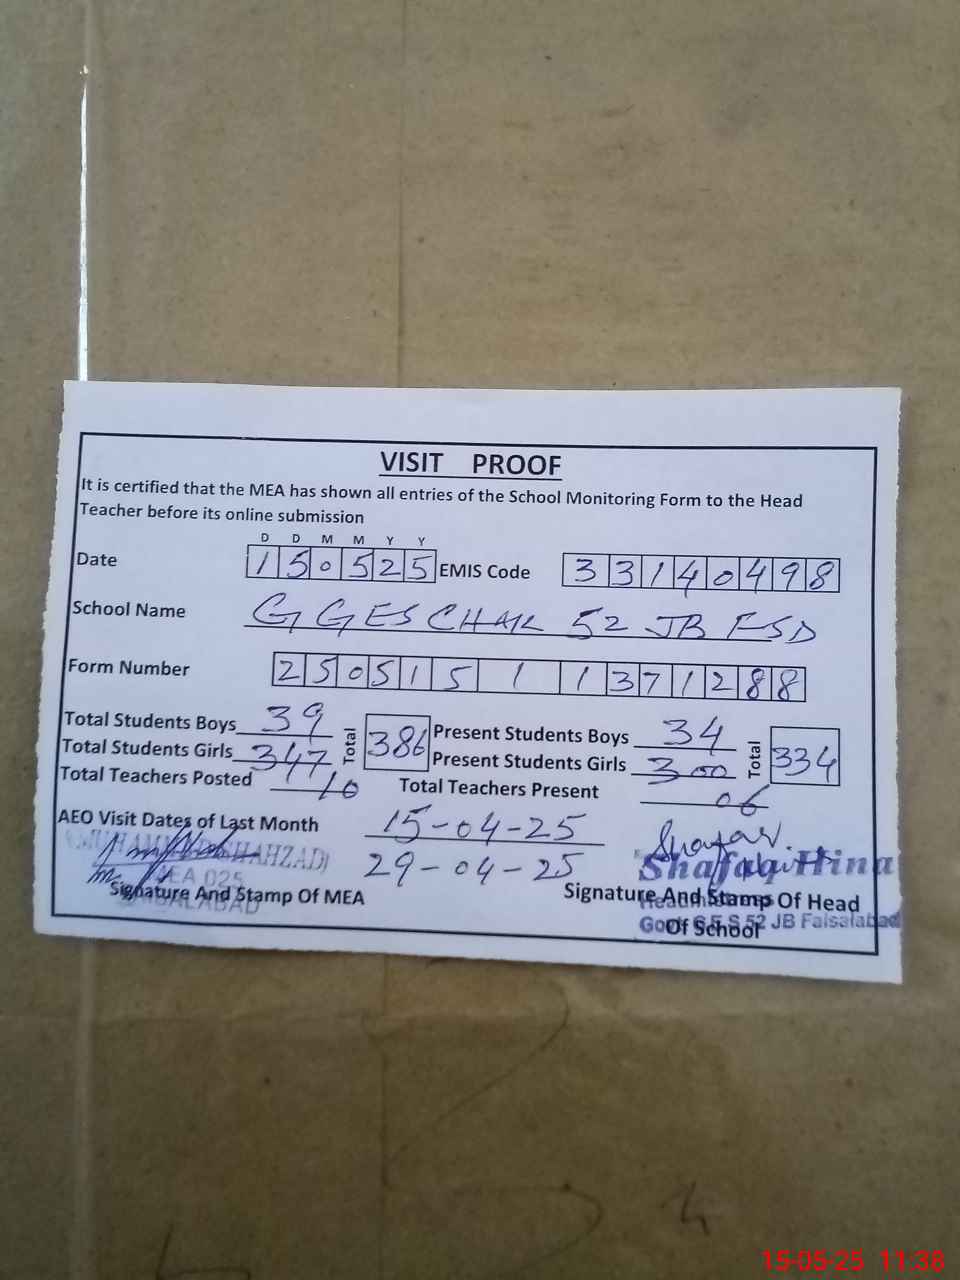 VISIT PROOF
It is certified that the MEA has shown all entries of the School Monitoring Form to the Head
Teacher before its online submission
D D M M Y Y
Date 150525 EMIS Code 33140498
School Name GGES CHAK 52 JB FSD
Form Number 250515 1 1371288
Total Students Boys 39 Total 386 Present Students Boys 34 Total 334
Total Students Girls 347 Present Students Girls 300
Total Teachers Posted 10 Total Teachers Present 06
AEO Visit Dates of Last Month 15-04-25
29-04-25
(MUHAMMAD SHAHZAD)
MEA 025
FAISALABAD
Signature And Stamp Of MEA
Shafaq Hina
Headmistress
Govt G.E.S 52 JB Faisalabad
Signature And Stamp Of Head
Of School
15-05-25 11:38